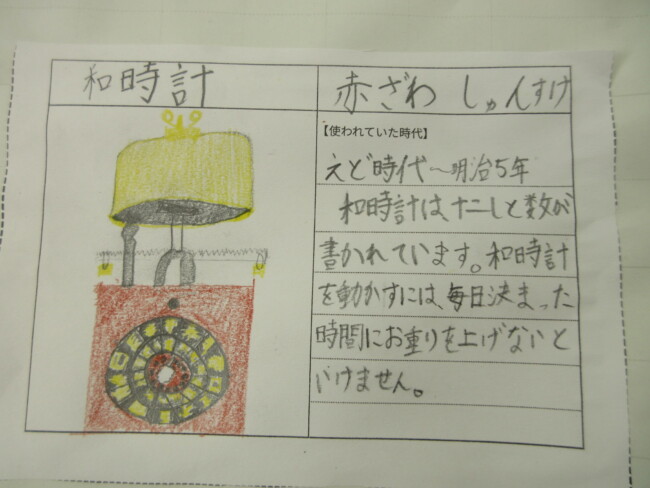 和時計
赤ざわ しゅんすけ
【使われていた時代】
えど時代～明治5年
和時計は、十二しと数が
書かれています。和時計
を動かすには、毎日決まった
時間にお重りを上げないと
いけません。